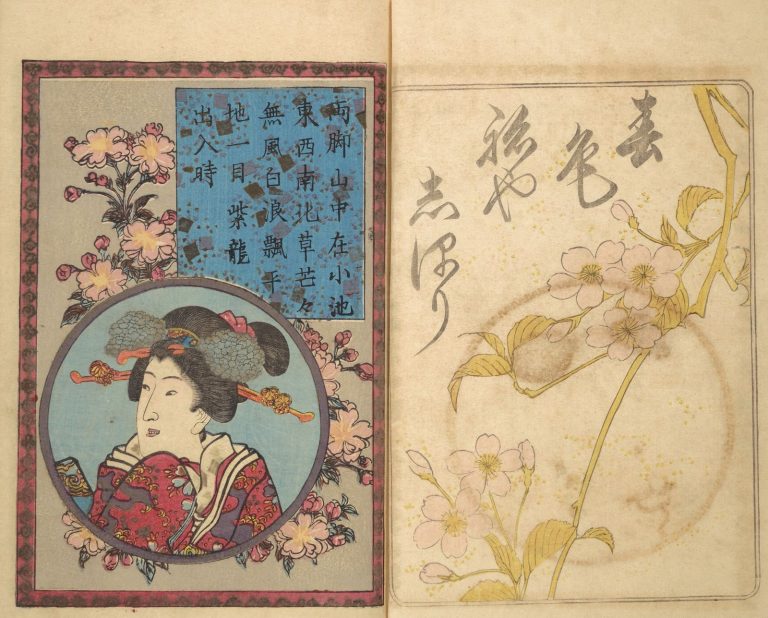 春
色
祢や
志ほり
両脚山中在小池
東西南北草芒々
無風白浪飄平
地一目紫龍
出入時